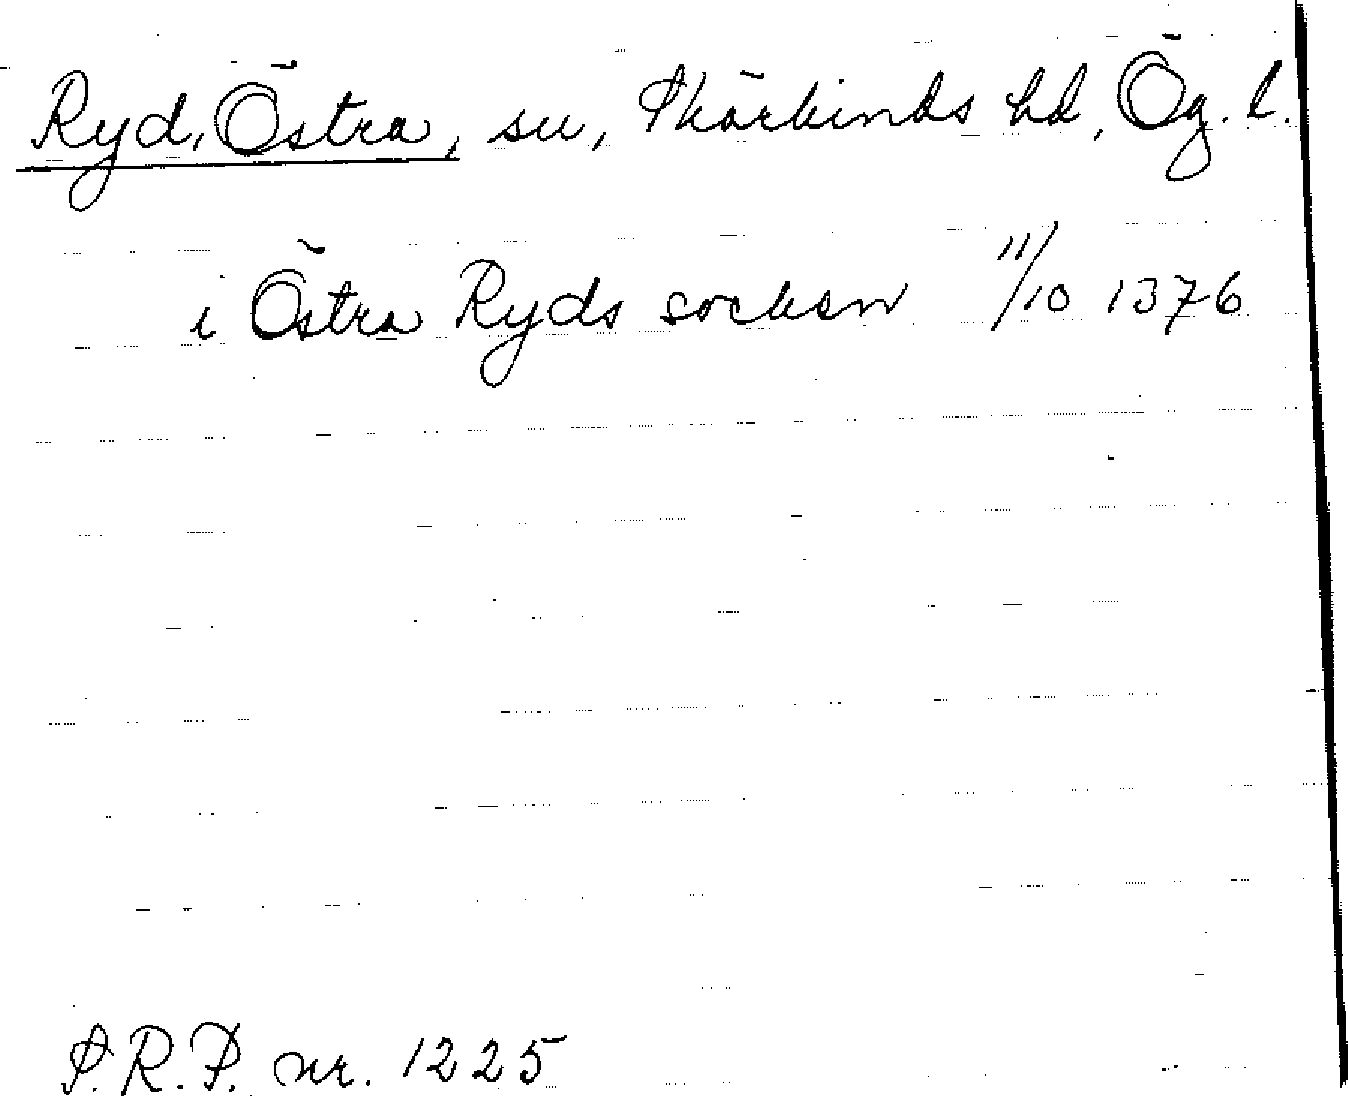 Ryd, Östra, sn, Skärkinds hd, Ög. l.
i Östra Ryds socken 11/10 1376
S.R.P. nr. 1225